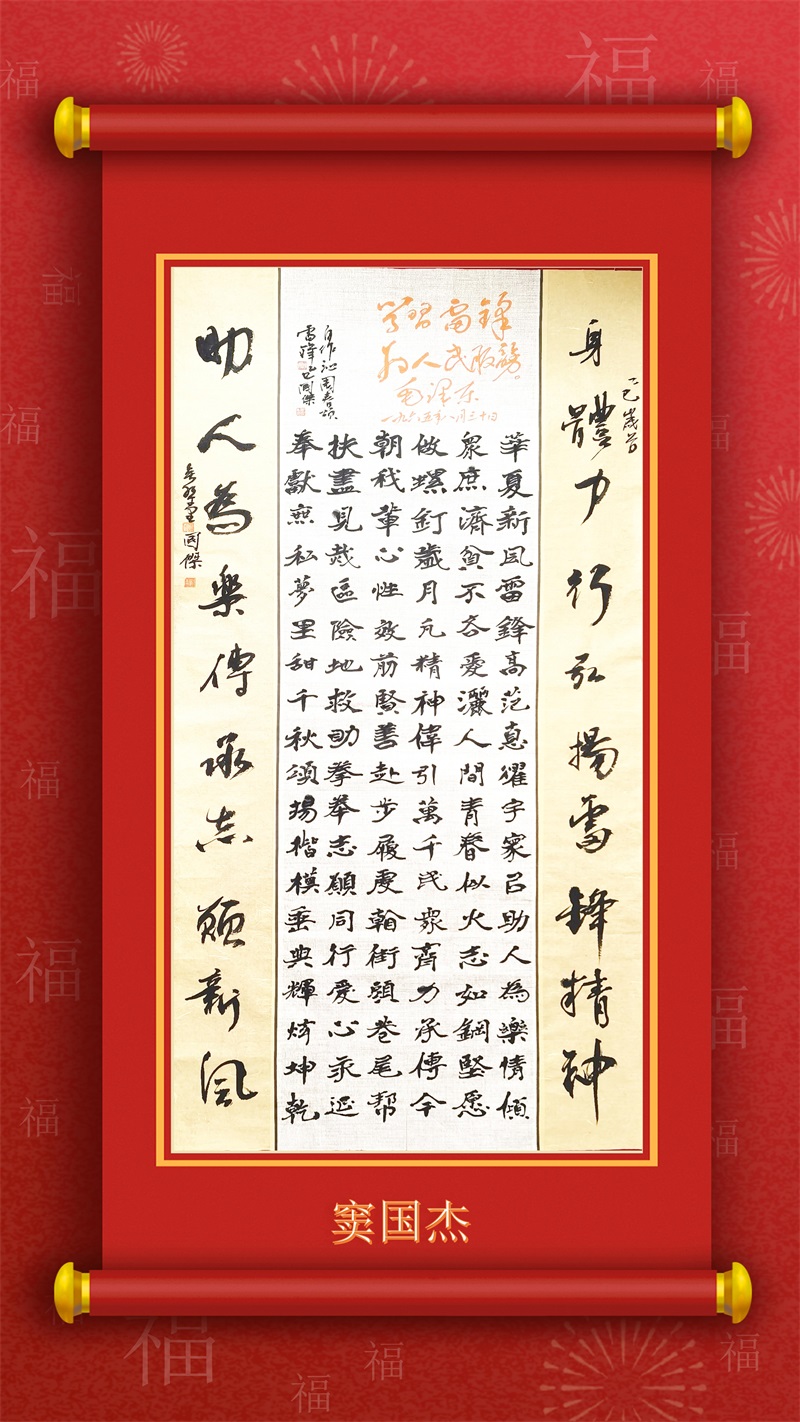 福
学習雷鋒
为人民服務。
毛泽东
一九六五年八月三十日
乙巳歲首
身體力行弘揚雷鋒精神
自作沁園春頌
雷鋒乙巳國傑
華夏新风雷鋒高范惠耀宇寰召助人為樂情傾
衆庶濟貧不吝愛灑人間青春似火志如鋼堅愿
做螺釘歲月凡精神偉引萬千民衆齊力承傳今
朝我輩心性效前賢善赴步履處輪街頭巷尾幫
扶盡見哉區險地救助拳拳志願同行愛心永巡
奉獻無私夢里甜千秋頌揚楷模垂典輝炫坤乾
助人為樂傳承志願新風
國傑
窦国杰